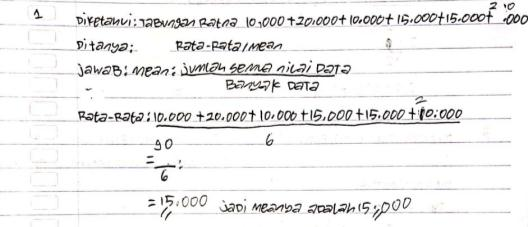 1 Diketahui: Tabungan Ratna 10.000 + 20.000 + 10.000 + 15.000 + 15.000 + 20.000
Ditanya: Rata-Rata/Mean
Jawab: Mean: jumlah semua nilai Data
Banyak Data
Rata-Rata: 10.000 + 20.000 + 10.000 + 15.000 + 15.000 + 20.000
6
= 90
6 :
= 15.000 Jadi meannya adalah 15.000